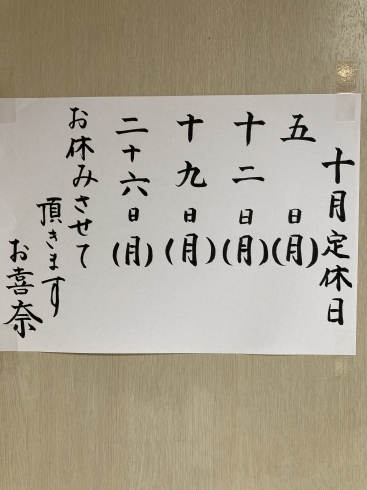 十月定休日
五日(月)
十二日(月)
十九日(月)
二十六日(月)
お休みさせて
頂きます
お喜奈